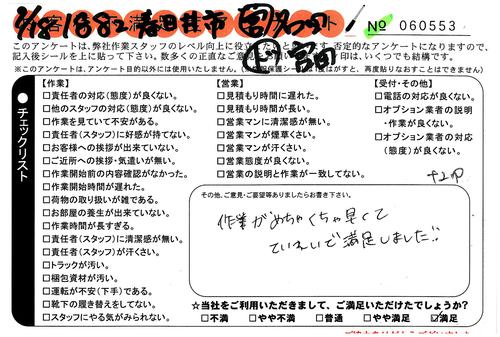 2/18 1882 春日井市
№ 060553
このアンケートは、弊社作業スタッフのレベル向上に役立
記入後シールを上に貼って下さい。数多くの正直なご意見
印は、いくつでも結構です。
※このアンケートは、アンケート目的以外には使用いたしません。
はがすと、再度貼りなおすことはできません)
●チェックリスト
【作業】
□責任者の対応(態度)が良くない。
□他のスタッフの対応(態度)が良くない。
□作業を見ていて不安がある。
□責任者(スタッフ)に好感が持てない。
□お客様への挨拶が出来ていない。
□ご近所への挨拶・気遣いが無い。
□作業開始前の内容確認がなかった。
□作業開始時間が遅れた。
□荷物の取り扱いが雑である。
□お部屋の養生が出来ていない。
□作業時間が長すぎる。
□責任者(スタッフ)に清潔感が無い。
□責任者(スタッフ)が汗くさい。
□トラックが汚い。
□梱包資材が汚い。
□運転が不安(下手)である。
□靴下の履き替えをしてない。
□スタッフにやる気がみられない。
【営業】
□見積もり時間に遅れた。
□見積もり時間が長い。
□営業マンに清潔感が無い。
□営業マンが煙草くさい。
□営業マンが汗くさい。
□営業態度が良くない。
□営業の説明と作業が一致してない。
【受付・その他】
□電話の対応が良くない。
□オプション業者の説明
・作業が良くない。
□オプション業者の対応
(態度)が良くない。
その他、ご意見・ご要望等ありましたらお書き下さい。
作業がめちゃくちゃ早くて
ていねいで満足しました!!
☆当社をご利用いただきまして、ご満足いただけたでしょうか?
□不満 □やや不満 □普通 □やや満足 ☑満足